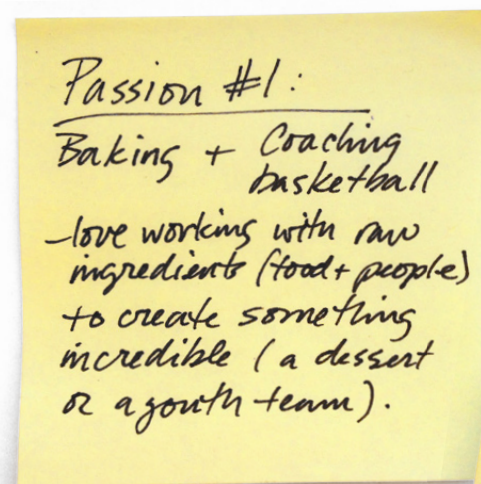 Passion #1:
Baking + Coaching
basketball
-love working with raw
ingredients (food + people)
to create something
incredible (a dessert
or a youth team).